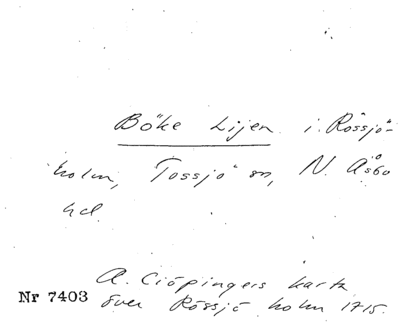 Böke Lijen i Rössjö-
holm, Tossjö sn, N. Åsbo
hd.
A. Ciöpingers karta
Nr 7403 över Rössjöholm 1715.